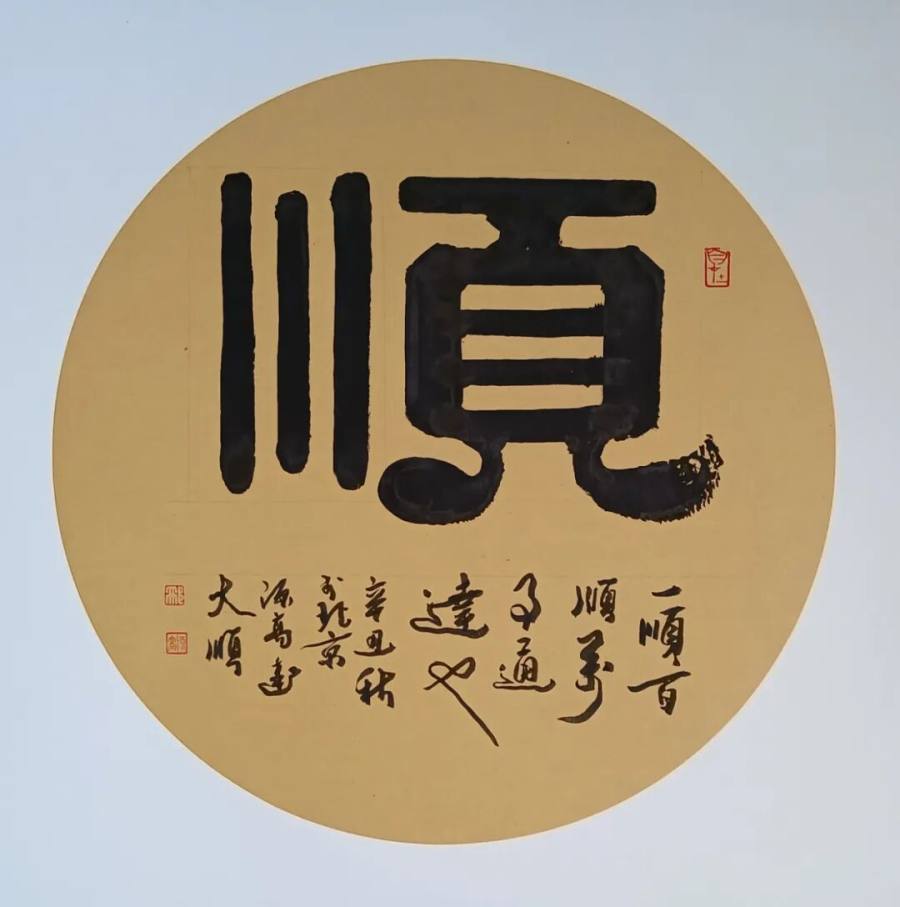 順
自在
一順百
順萬
事通
達也
辛丑秋
於北京
高
大順